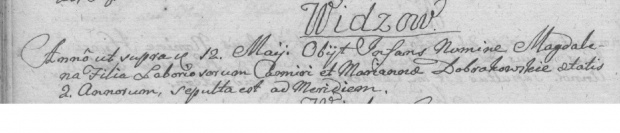 Widzow.
Annô ut supra 12. Maij. Obijt Infans Nomine Magdale-
na Filia Laboriosorum Casimiri et Marianna Dobrakowskie ætatis
2. Annorum, sepulta est ad Meridiem.